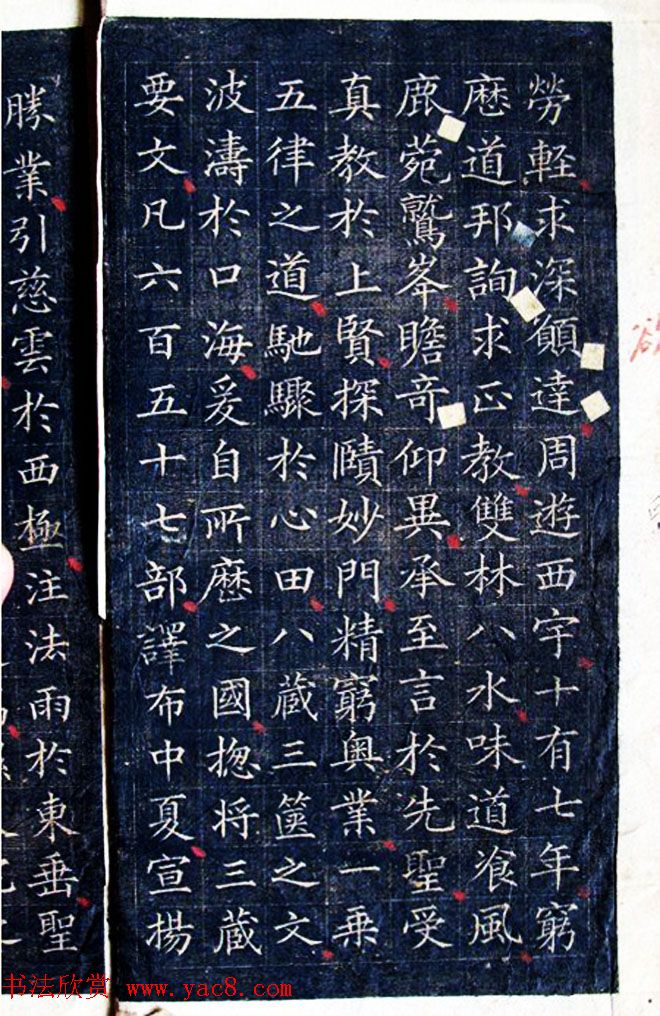 勞軽求深願達周遊西宇十有七年窮
歷道邦詢求正教雙林八水味道飡風
鹿菀鷲峯瞻奇仰異承至言於先聖受
真教於上賢探賾妙門精窮奥業一乗
五律之道馳驟於心田八蔵三篋之文
波濤於口海爰自所歷之國揔将三蔵
要文凡六百五十七部譯布中夏宣揚
勝業引慈雲於西極注法雨於東垂聖
书法欣赏 www.yac8.com